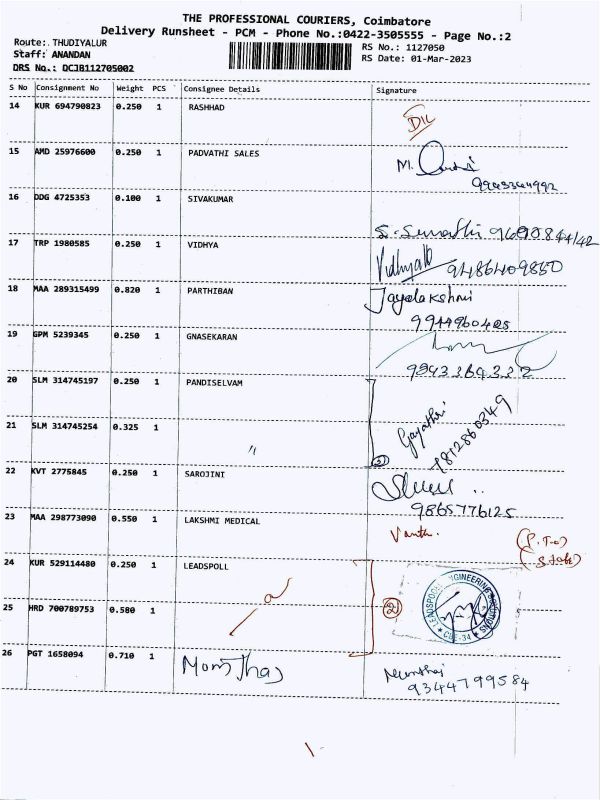 THE PROFESSIONAL COURIERS, Coimbatore
Delivery Runsheet - PCM - Phone No.:0422-3505555 - Page No.:2
Route: THUDIYALUR
Staff: ANANDAN
DRS No.: DCJB112705002
RS No.: 1127050
RS Date: 01-Mar-2023
S No Consignment No Weight PCS Consignee Details Signature
14 KUR 694790823 0.250 1 RASHHAD
15 AMD 25976600 0.250 1 PADVATHI SALES M.
16 DDG 4725353 0.100 1 SIVAKUMAR
17 TRP 1980585 0.250 1 VIDHYA Vidhya
9486409850
18 MAA 289315499 0.820 1 PARTHIBAN Jayalakshmi
9944960425
19 GPM 5239345 0.250 1 GNASEKARAN
9843364332
20 SLM 314745197 0.250 1 PANDISELVAM
21 SLM 314745254 0.325 1 〃 Gayathri
7812860349
22 KVT 2775845 0.250 1 SAROJINI
9865776125
23 MAA 298773090 0.550 1 LAKSHMI MEDICAL
24 KUR 529114480 0.250 1 LEADSPOLL
25 HRD 700789753 0.580 1 2
26 PGT 1658094 0.710 1
9344799584